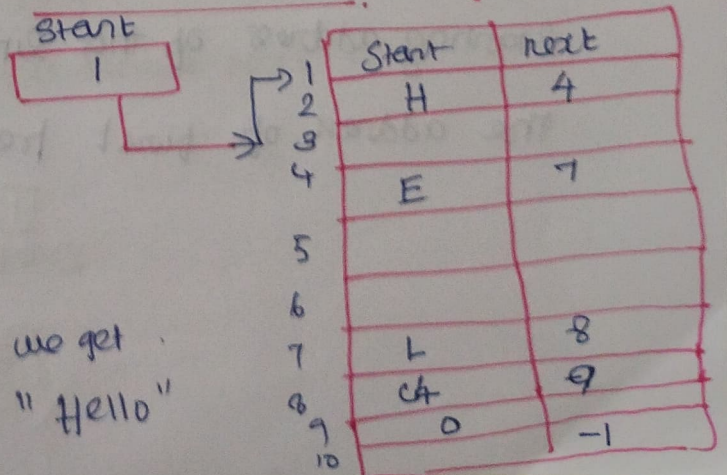 Start
1
Start next
1
2 H 4
3
4 E 7
5
6
7 L 8
8 9
9 0 -1
10
we get
"Hello"